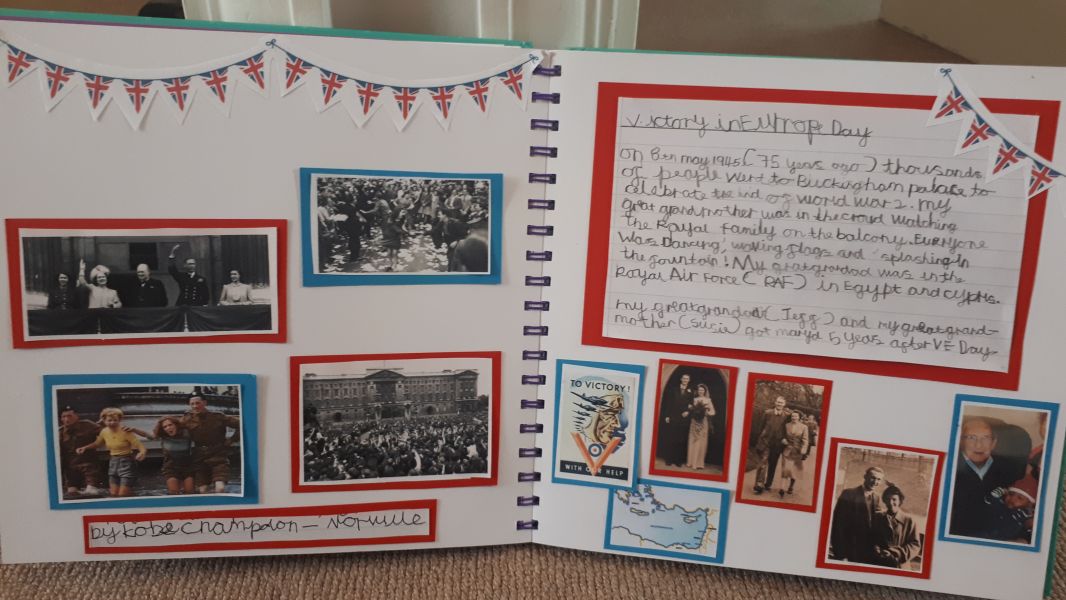 Victory in Europe Day
On 8th may 1945 (75 years ago) thousands
of people went to Buckingham palace to
celebrate the end of world war 2. my
great grandmother was in the crowd watching
the Royal Family on the balcony. Everyone
was Dancing, waving flags and splashing in
the fountain! My gratgrandad was in the
Royal Air Force (RAF) in Egypt and cyprus.
my greatgrandad (Jegg) and my great grand-
mother (Susie) got maryd 5 years after VE Day
TO VICTORY!
WITH OUR HELP
by Kobe Champion - Norville